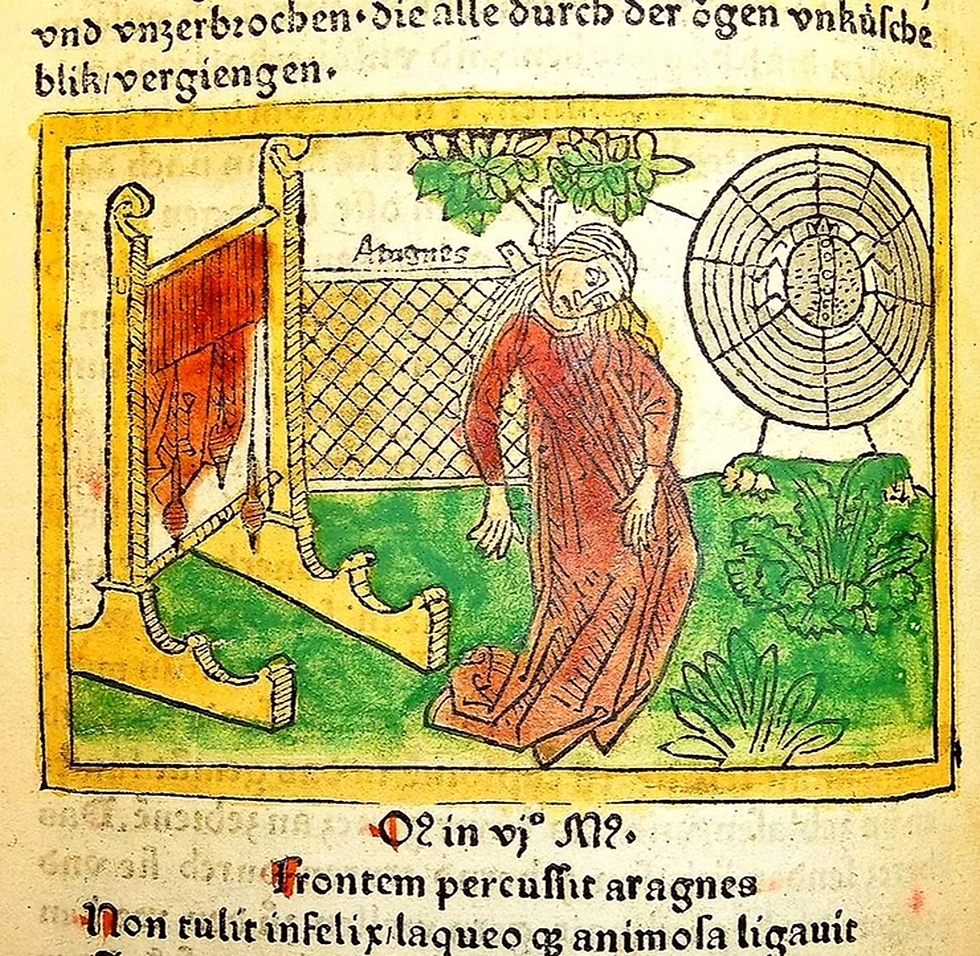 vnd vnzerbrochen·die alle durch der ögen vnkùsche
blik/vergiengen·
Aragnes
Oꝛ in vjº Mꝛ·
Frontem percuſſit aragnes
Non tulit infelix/laqueo qꝫ animoſa ligauit